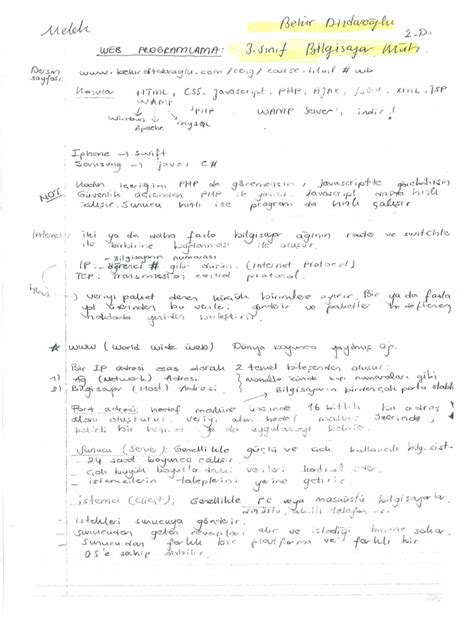 Melek
Bekir Dizdaroğlu
2.D.
WEB PROGRAMLAMA: 3.Sınıf Bilgisayar Müh.
Dersin sayfası: www.bekirdizdaroglu.com/ceng/course.html#wb
Konular HTML, CSS, Javascript, PHP, AJAX, XML, JSP
WAMP +PHP WAMP Server'ı indir!
Windows Apache mysql
Iphone → swift
Samsung → java C#
NOT Kodun içeriğini PHP de göremezsin, Javascriptte görebilirsin
Güvenlik açısından PHP iyi Javascript daha hızlı
çalışır. Sunucu hızlı ise program da hızlı çalışır
Internet: iki ya da daha fazla bilgisayar ağının router ve switchle
ile birbirine bağlanması ile oluşur.
Bilgisayarın numarası
IP: öğrenci # gibi (Internet Protocol)
TCP: Transmission control protocol.
İşlevi → veriyi paket denen küçük birimlere ayırır. Bir ya da fazla
yol üzerinden bu verileri gönderir ve paketler hedeflenen
noktada yeniden birleştirir.
★ www (World wide web) Dünya boyunca yayılmış ağ.
Bir IP adresi esas olarak 2 temel bileşenden oluşur:
1) Ağ (Network) Adresi mahalle içinde kapı numaraları gibi
2) Bilgisayar (Host) Adresi Bilgisayarın birden çok portu olabilir
Port adresi: Hedef makine üzerinde 16 bitlik bir adres
alanı oluşturur, veriyi alan hedef makine üzerinde,
belirli bir ya da uygulamayı
Sunucu (Server): Genellikle güçlü ve çok kullanıcılı bilg. sist.
- 24 saat boyunca çalışır
- çok büyük boyutlardaki verileri
- istemcilerin taleplerini yerine getirir
istemci (Client): Genellikle PC veya masaüstü bilgisayarlar
dizüstü, akıllı telefon
- istekleri sunucuya gönderir.
- sunucudan gelen cevapları alır ve istediği sunar.
- Sunucudan farklı bir platform ve farklı bir
OS'e sahip olabilir.